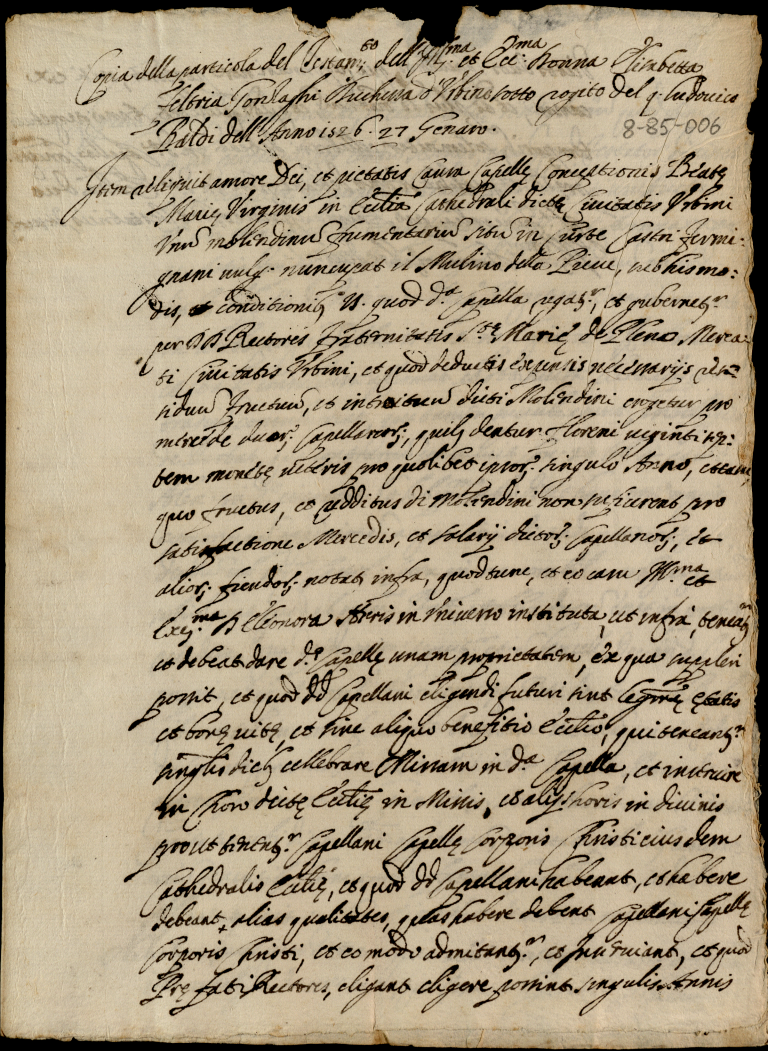 Copia della particola del Testam.to dell'Ill.ma et Ecc.ma Donna Elisabetta
Feltria Gonzaghi Duchessa d'Urbino sotto rogito del q. Ludovico
Baldi dell'Anno 1526. 27 Genaro.
8-85-006
Item reliquit amore Dei, et pietatis causa Capellę Conceptionis Beatę
Marię Virginis in Eccl̃ia Cathedrali dictę Civitatis Urbini
Unũ molendinũ frumentariũ situ in Curte Castri Fermi-
gnani vulg. nuncupat il Mulino della Pieve, cũ his mo-
dis, et conditionib. V. quod d.a Capella regat.r, et gubernet.r
per DD Rectores Fraternitatis S.tę Marię de Plano Merca-
ti Civitatis Urbini, et quod deductis expensis necessarijs resi-
duũ fructuũ, et introituũ dicti Molendini erogetur pro
mercede duor. Capellanor., quib. dentur floreni viginti sep-
tem monetę veteris pro quolibet ipsor. singulo Anno, et casu
quo fructus, et redditus di molendini non sufficerent pro
satisfactione Mercedis, et salarij dictor. Capellanor., et
alior. fiendor. notat infra, quod tunc, et eo casu Ill.ma et
Exc.ma D Eleonora Heres in universo instituta, ut infra, teneat.r
et debeat dare d.ę Capellę unam proprietatem, ex qua suppleri
possit, et quod dd Capellani eligendi futuri sint legitimę ętatis
et bonę vitę, et sine aliquo benefitio Eccl̃io, qui teneant.r
singlis dieb cellebrare Missam in d.a Capella, et inservire
in Choro dictę Eccl̃ię in Missis, et alijs horis in divinis
prout tenent.r Capellani Capellę Corporis Christi eiusdem
Cathedralis Eccl̃ię, et quod dd Capellani habeant, et habere
debeant alias qualitates, quas habere debent Capellani Capellę
Corporis Christi, et eo modo admitant.r, et inserviant, et quod
Pręfati Rectores, eligant eligere possint singulis Annis